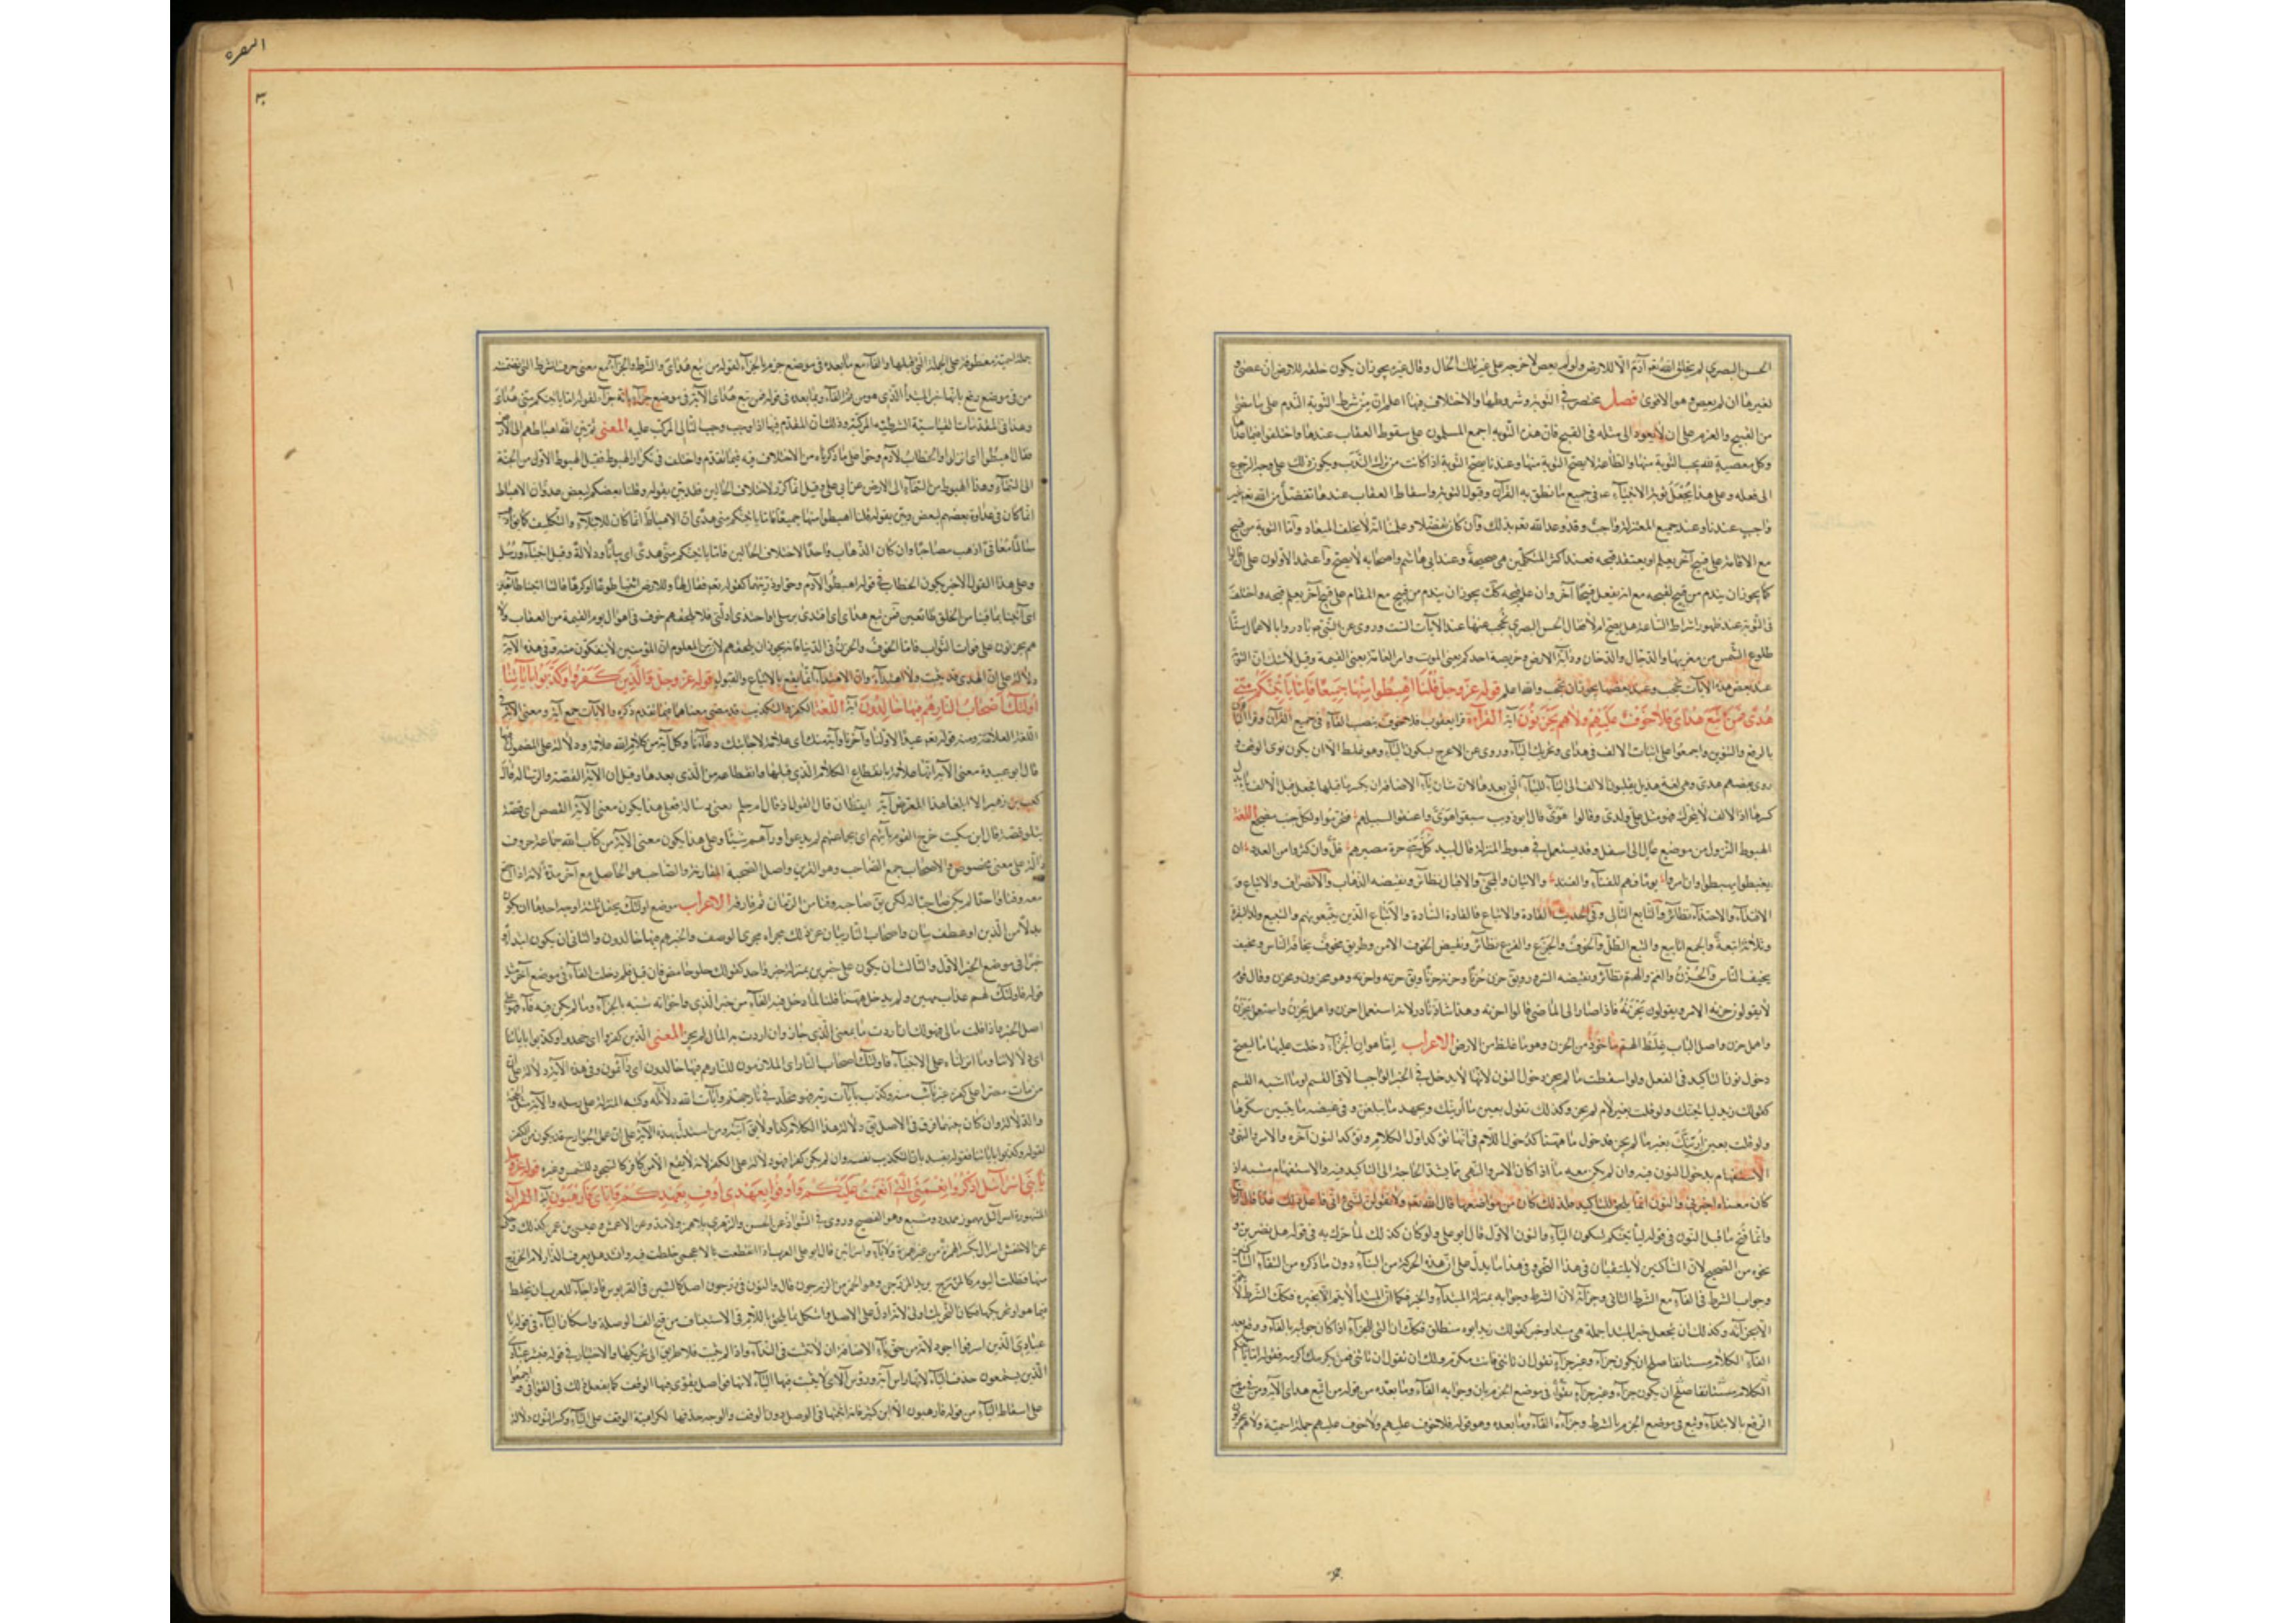 الحسن البصري لم يخلق الله تعم آدم الا للارض ولو لم يعص لاخرجه على غير تلك الحال وقال غيره يجوز ان يكون خلقه للارض ان عصى و
لغيرها ان لم يعص وهو الاقوى فصل مختصر في التوبة وشروطها والاختلاف فيها اعلم ان من شرط التوبة الندم على ما مضى
من القبيح والعزم على ان لا يعود الى مثله في القبح فان هذه التوبة اجمع المسلمون على سقوط العقاب عندها واختلفوا فيما عداها
وكل معصية لله يجب التوبة منها والطاعة لا يصح التوبة منها وعندنا يصح التوبة اذا كانت من ترك الندب ويكون ذلك على وجه الرجوع
الى فعله وعلى هذا يحمل توبة الانبياء عم في جميع ما نطق به القرآن وقبول التوبة واسقاط العقاب عندها تفضل من الله تعم غير
واجب عندنا وعند جميع المعتزلة واجب وقد وعد الله تعم بذلك وان كان تفضلا وعلمنا انه لا يخلف الميعاد واما التوبة من قبيح
مع الاقامة على قبيح آخر يعلم او يعتقد قبحه فعند اكثر المتكلمين هي صحيحة وعند ابي هاشم واصحابه لا يصح واعتمد الاولون على ان قالوا
كما يجوز ان يندم من قبيح لقبحه مع انه يفعل قبيحا آخر وان علم قبحه كك يجوز ان يندم من قبيح مع المقام على قبيح آخر يعلم قبحه واختلف
في التوبة عند ظهور اشراط الساعة هل يصح ام لا فقال الحسن البصري يحجب عنها عند الآيات الست وروى عن النبي ص بادروا بالاعمال ستا
طلوع الشمس من مغربها والدجال والدخان ودابة الارض وخويصة احدكم يعني الموت وامر العامة يعني القيمة وقيل لا شك ان التوبة
عند بعض هذه الآيات يحجب وعند بعضها يجوز ان يحجب والله اعلم قوله عز وجل قلنا اهبطوا منها جميعا فاما ياتينكم مني
هدى فمن تبع هداي فلا خوف عليهم ولا هم يحزنون آية القراءة قرا يعقوب فلا خوف بنصب الفاء في جميع القرآن وقرا الباقون
بالرفع والتنوين واجمعوا على اثبات الالف في هداي وتحريك الياء وروى عن الاعرج بسكون الياء وهو غلط الا ان يكون نوى الوقف و
روى بعضهم هدي وهي لغة هذيل يقلبون الالف الى الياء للياء التي بعدها لان شان ياء الاضافة ان يكسر ما قبلها
كسرها اذ الالف لا يتحرك فهو مثل علي ولدي وقالوا هوي قال ابو ذويب سبقوا هوي واعنقوا لسبيلهم فتخرموا ولكل جنب مصرع اللغة
الهبوط النزول من موضع عال الى اسفل وقد يستعمل في هبوط المنزلة قال لبيد كل بني حرة مصيرهم قل وان كثروا من العدد ان
يغبطوا يهبطوا وان امروا يوما فهم للفناء والفند والاتيان والمجيء والاقبال نظائر ونقيضه الذهاب والانصراف والاتباع و
الاقتداء والاحتذاء نظائر والتابع التالي وفي الحديث القادة والاتباع فالقادة السادة والاتباع الذين يتبعونهم والتبيع ولد البقرة
وثلاثة اتبعة والجمع اتابيع والتبع الظل والخوف والجزع والفزع نظائر ونقيض الخوف الامن وطريق مخوف يخافه الناس ومخيف
يخيف الناس والحزن والغم والهم نظائر ونقيضه السرور ويق حزن حزنا وحزنه حزنا ويق حزنه واحزنه وهو محزون ومحزن وقال قوم
لا يقولون حزنه الامر ويقولون يحزنه فاذا صاروا الى الماضي قالوا احزنه وهذا شاذ نادر لانه استعمل احزن واهمل يحزن واستعمل يحزن
واهمل حزن واصل الباب غلظ الهم ماخوذ من الحزن وهو ما غلظ من الارض الاعراب اما هو ان الجزاء دخلت عليها ما ليصح
دخول نون التاكيد في الفعل ولو اسقطت ما لم يجز دخول النون لانها لا يدخل في الخبر الواجب الا في القسم او ما اشبه القسم
كقولك زيد لياتينك ولو قلت بغير لام لم يجز وكذلك تقول بعين ما ارينك وبجهد ما تبلغن وفي عضه ما ينبتن شكيرها
ولو قلت بعين ارينك بغير ما لم يجز فدخول ما ههنا كدخول اللام في انها تؤكد اول الكلام وتؤكد النون آخره والامر والنهي و
الاستفهام يدخل النون فيه وان لم يكن معه ما اذا كان الامر والنهي مما يشتد الحاجة الى التاكيد فيه والاستفهام مشبه اذ
كان معناه اخبرني والنون انما يلحق للتاكيد فلذلك كان من مواضعها قال الله تعم ولا تقولن لشيء اني فاعل ذلك غدا
وانما فتح ما قبل النون في قوله لياتينكم لسكون الياء والنون الاولى قال ابو علي ولو كان كذلك لما حرك به في قوله هل تضربن و
نحوه من الصحيح لان الساكنين لا يلتقيان في هذا النحو وفي هذا ما يدل على ان هذه الحركة من البناء دون ما ذكره من التقاء الساكنين
وجواب الشرط في الفاء مع الشرط الثاني وجزائه لان الشرط وجوابه بمنزلة المبتدا والخبر فكما ان المبتدا لا يتم الا بخبره فكك الشرط لا يتم
الا بجزائه وكذلك ان تجعل خبر المبتدا جملة هي مبتدا وخبر كقولك زيد ابوه منطلق فكك ان التي للجزاء اذا كان جوابه بالفاء ووقع بعد
الفاء الكلام مستانفا صلح ان يكون جزاء وغير جزاء تقول ان تاتني فانت مكرم ولك ان تقول ان تاتني فمن يكرمك اكرمه فقوله اما ياتينكم
الكلام مستانفا صلح ان يكون جزاء وغير جزاء تقول في موضع الجزم بان وجوابه الفاء وما بعده من قوله من اتبع هداي الآية ومن في موضع
الرفع بالابتداء وتبع في موضع الجزم بالشرط وجزاءه الفاء وما بعده وهو قوله فلا خوف عليهم ولا خوف عليهم جملة اسمية ولا هم يحزنون
البقره
جملة اسمية معطوفة على الجملة التي قبلها والفاء مع ما بعده في موضع جزم بالجزاء لقوله من تبع هداي والشرط والجزاء مع معنى حرف الشرط الذي تضمنته
من في موضع رفع بانها خبر المبتدا الذي هو من ثم الفاء وما بعده في قوله فمن تبع هداي الآية في موضع جزاء بانه جزاء لقوله اما ياتينكم مني هدى
وهذا في المقدمات القياسية الشرطية المركبة وذلك ان المقدم فيها اذا وجب وجب التالي المركب عليه المعنى ثم بين الله اهباطهم الى الارض
فقال اهبطوا اي انزلوا والخطاب لآدم وحوا على ما ذكرناه من الاختلاف فيه فيما تقدم واختلف في تكرار الهبوط فقيل الهبوط الاول من الجنة
الى السماء وهذا الهبوط من السماء الى الارض عن ابي علي وقيل انما كرر لاختلاف الحالين فقد بين بقوله وقلنا بعضكم لبعض عدو ان الاهباط
انما كان في عداوة بعضهم لبعض وبين بقوله قلنا اهبطوا منها جميعا فاما ياتينكم مني هدى ان الاهباط انما كان للابتلاء والتكليف كما يق اذهب
سالما معافى اذهب مصاحبا وان كان الذهاب واحدا لاختلاف الحالين فاما ياتينكم مني هدى اي بيان ودلالة وقيل انبياء ورسل
وعلى هذا القول الاخير يكون الخطاب في قوله اهبطوا لآدم وحوا وذريتهما كقوله تعم فقال لها وللارض ائتيا طوعا او كرها قالتا اتينا طائعين
اي اتينا بما فينا من الخلق طائعين فمن تبع هداي اي اقتدى برسلي واحتذى ادلتي فلا يلحقهم خوف في اهوال يوم القيمة من العقاب ولا
هم يحزنون على فوات الثواب فاما الخوف والحزن في الدنيا فانه يجوز ان يلحقهم لان من المعلوم ان المؤمنين لا ينفكون منه وفي هذه الآية
دلالة على ان الهدى قد يثبت ولا اهتداء وان الاهتداء انما يقع بالاتباع والقبول قوله عز وجل والذين كفروا وكذبوا بآياتنا
اولئك اصحاب النار هم فيها خالدون آية اللغة الكفر والتكذيب قد مضى معناهما فيما تقدم ذكره والآيات جمع آية ومعنى الآية في
اللغة العلامة ومنه قوله تعم عيدا لاولنا وآخرنا وآية منك اي علامة لاجابتك دعاءنا وكل آية من كلام الله علامة ودلالة على المضمون فيها
قال ابو عبيدة معنى الآية انها علامة بانقطاع الكلام الذي قبلها وانقطاعه من الذي بعدها وقيل ان الآية القصة والرسالة قال
كعب بن زهير الا ابلغا هذا المعرض آية ايقظان قال القول اذ قال ام حلم يعني رسالة فعلى هذا يكون معنى الآية القصص اي قصة
تتلو قصة قال ابن سكيت خرج القوم بآيتهم اي بجماعتهم لم يدعوا وراءهم شيئا وعلى هذا يكون معنى الآية من كتاب الله جماعة حروف
دالة على معنى مخصوص والاصحاب جمع الصاحب وهو القرين واصل الصحبة المقارنة والصاحب هو الحاصل مع آخر مدة لانه اذا اجتمع
معه وقتا واحدا لم يكن صاحبا له لكن يق صاحبه وقتا من الزمان ثم فارقه الاعراب موضع اولئك يحتمل ثلثة اوجه احدها ان يكون
بدلا من الذين او عطف بيان واصحاب النار بيان عن ذلك مجراه مجرى الوصف والخبر هم فيها خالدون والثاني ان يكون ابتداء و
خبرا في موضع الخبر الاول والثالث ان يكون على خبرين بمنزلة خبر واحد كقولك حلو حامض فان قيل فلم دخلت الفاء في موضع آخر مثل
قوله فاولئك لهم عذاب مهين ولم يدخل ههنا قلنا لما دخل فيه الفاء من خبر الذي واخواته مشبه بالجزاء وما لم يكن فيه فاء فهو على
اصل الخبر فاذا قلت ما لي فهو لك ان اردت ما بمعنى الذي جاز وان اردت به المال لم يجز المعنى الذين كفروا اي جحدوا وكذبوا بآياتنا
اي دلالاتنا وما انزلناه على الانبياء فاولئك اصحاب النار اي الملازمون للنار هم فيها خالدون اي دائمون وفي هذه الآية دلالة على ان
من مات مصرا على كفره غير تائب منه وكذب بآيات ربه فهو مخلد في نار جهنم وآيات الله دلائله وكتبه المنزلة على رسله والآية مثل الحجة
والدلالة وان كان بينهما فرق في الاصل يق دلالة هذا الكلام كذا ولا يق آيته ومن استدل بهذه الآية على ان عمل الجوارح قد يكون من الكفر
لقوله وكذبوا بآياتنا فقوله يفسد بان التكذيب نفسه وان لم يكن كفرا فهو دلالة على الكفر لانه لا يقع الا من كافر كالسجود للشمس وغيره قوله عز وجل
يا بني اسرائيل اذكروا نعمتي التي انعمت عليكم واوفوا بعهدي اوف بعهدكم واياي فارهبون آية القراءة
المشهورة اسرائيل مهموز ممدود مشبع وهو الفصيح وروى في الشواذ عن الحسن والزهري بلا همز ولا مد وعن الاعمش وعيسى بن عمر كذلك وحكى
عن الاخفش اسرال بكسر الهمزة من غير همزة ولا ياء واسرائين قال ابو علي العرب اذا نطقت بالاعجمي خلطت فيه وانشد هل يعرف الدار لام الخزرج
منها فظلت اليوم كالمزرج يريد المزرجن وهو الخمر من الزرجون قال والنون في زرجون اصل كالسين في القربوس فاذا جاء للعرب ان تخلط
فيما هو من لغتهم فكيف فيما ليس من لغتهم
عبادي الذين اسرفوا اجود لانه من حق ياء الاضافة ان لا تثبت في النداء واذا لم يثبت فلا طريق الى تحريكها والاختيار في قوله فبشر عبادي
الذين يستمعون حذف الياء لانها راس آية ورؤس الآي لا يثبت فيها الياء لانها فواصل ينوى فيها الوقف كما يفعل ذلك في القوافي واجمعوا
على اسقاط الياء من قوله فارهبون الا ابن كثير فانه اثبتها في الوصل دون الوقف والوجه حذفها لكراهية الوقف على الياء وكسر النون دلالة